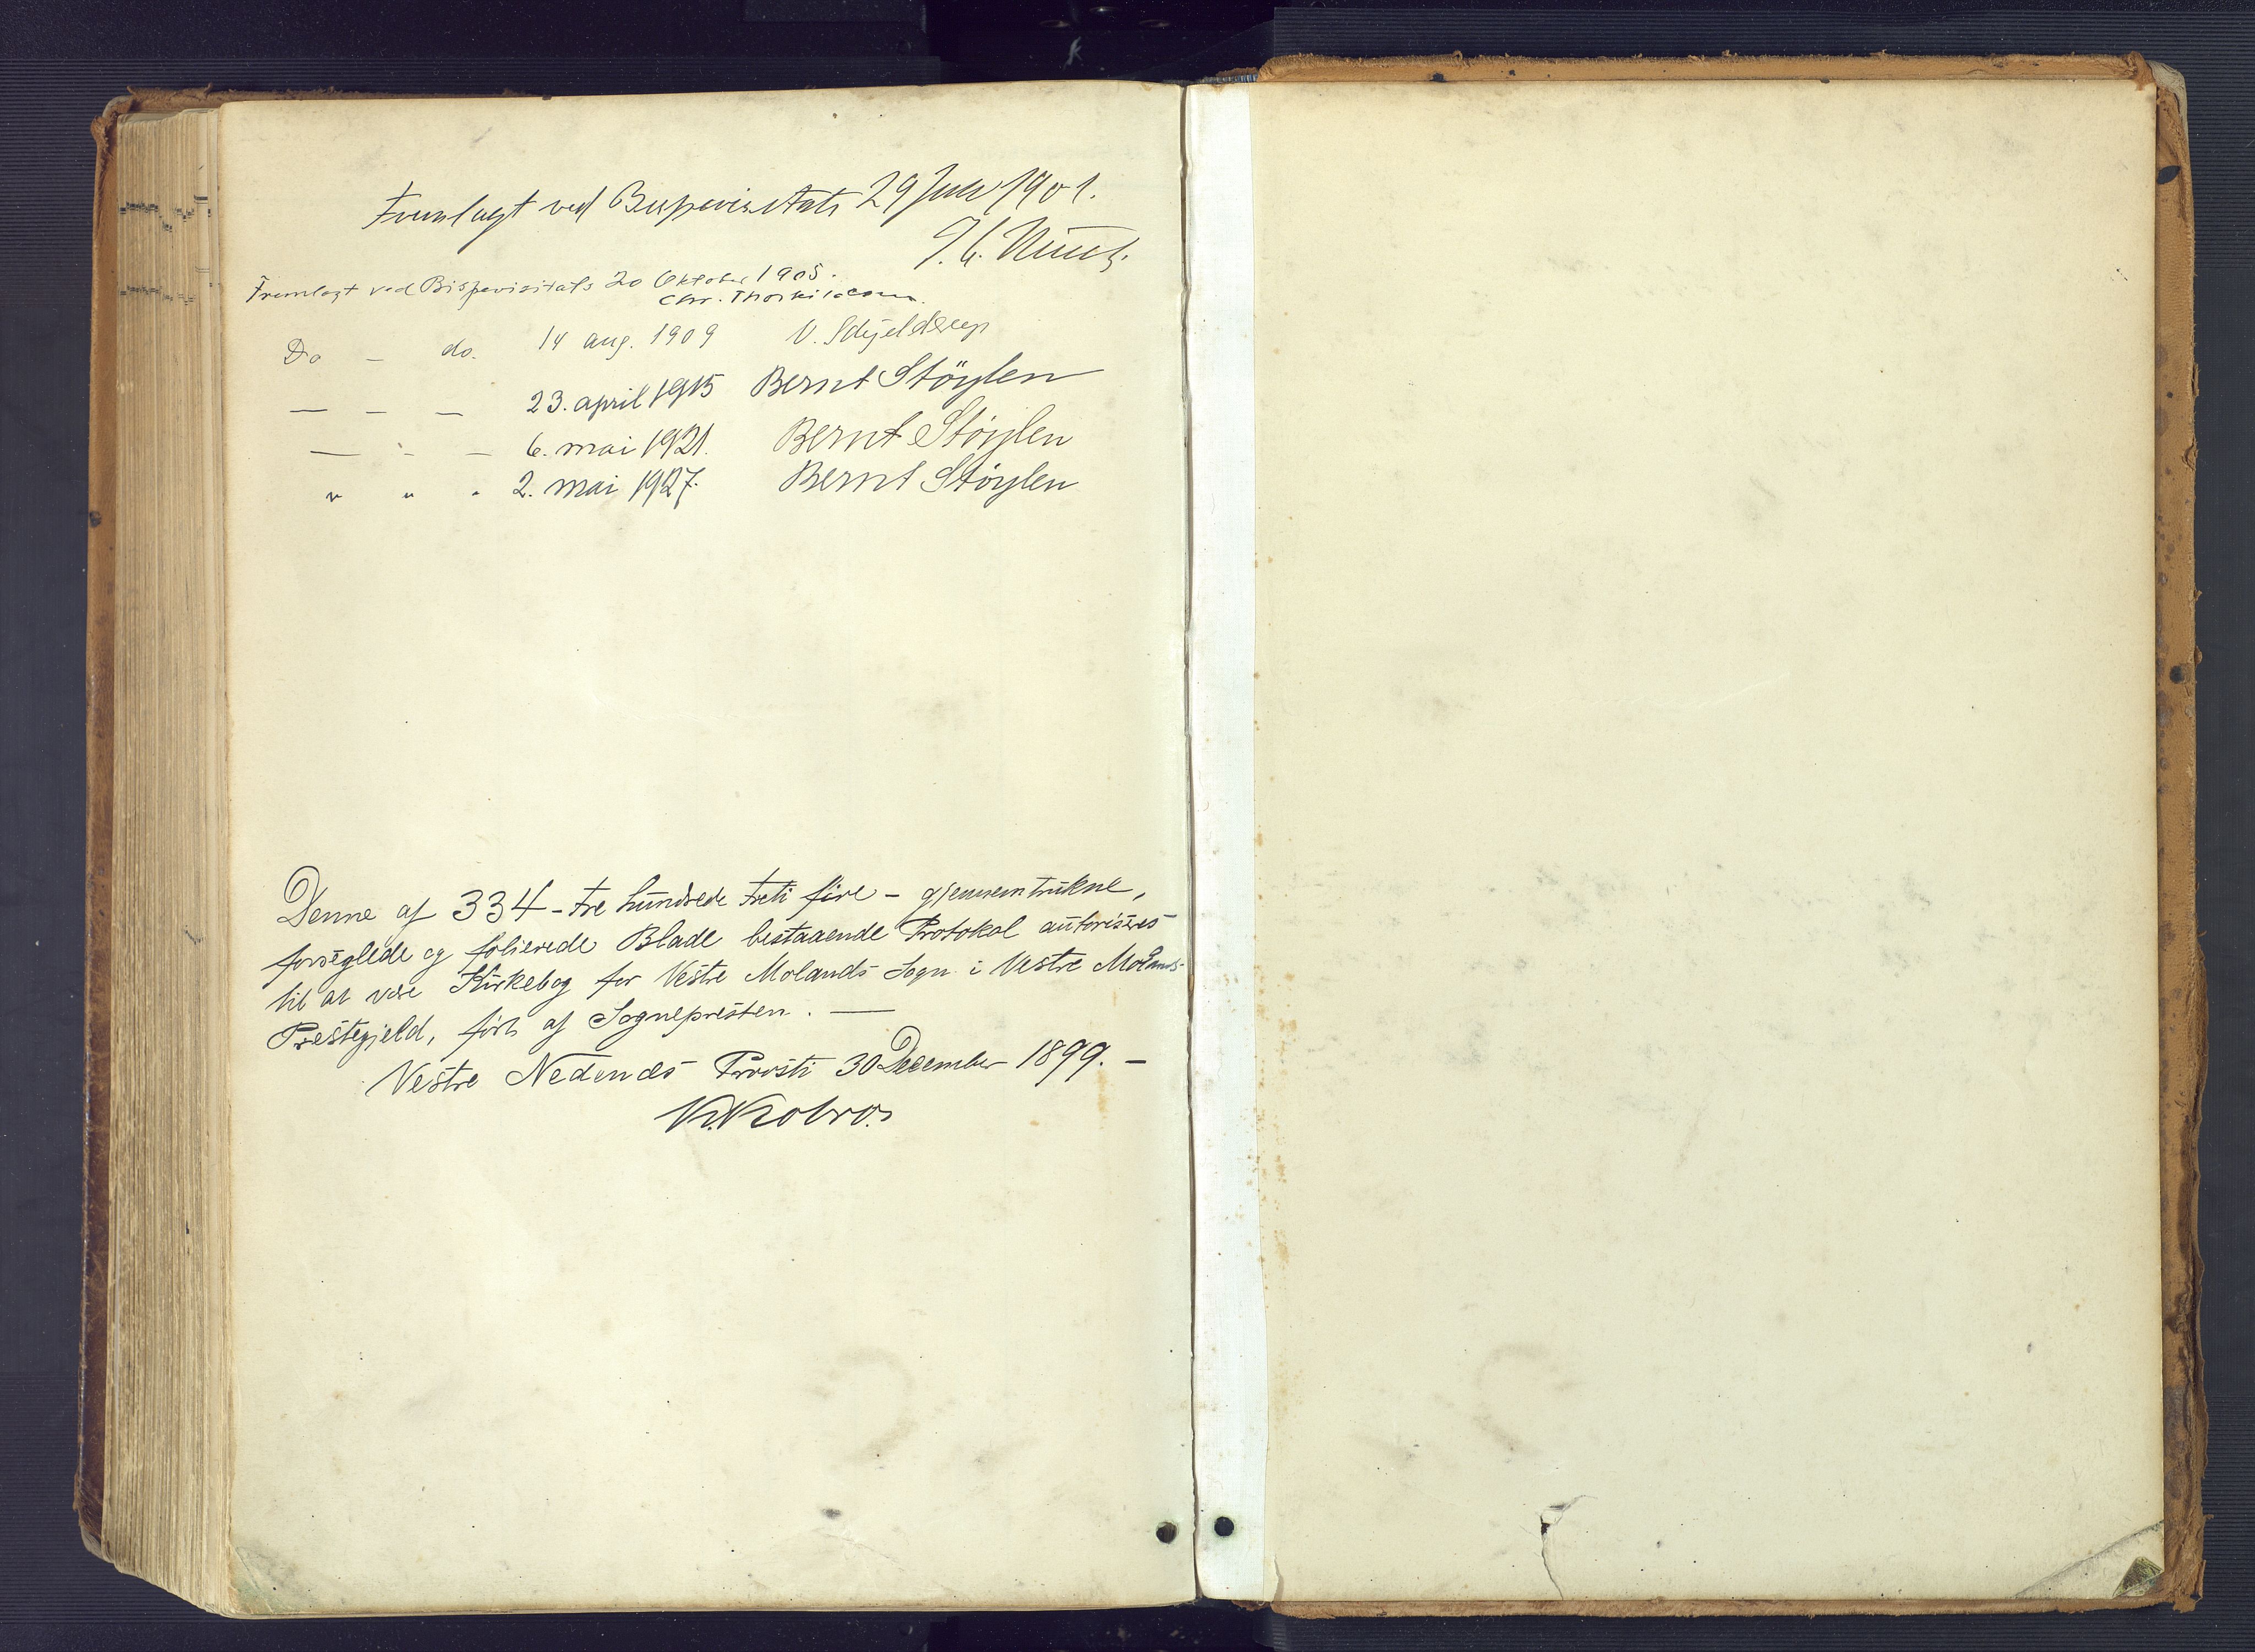 Fremlagt ved Bispevisitats 29 Juli 1901.
J. C. Heuch.
Fremlagt ved Bispevisitats 20 Oktober 1905.
Chr. Thorkildsen.
Do — do. 14 aug. 1909 V. Schjelderup
— — — 23. april 1915 Bernt Støylen
— - — 6. mai 1921. Bernt Støylen
" " " 2. mai 1927. Bernt Støylen
Denne af 334 - tre hundrede treti fire - gjennemtrukne,
forseglede og folierede Blade bestaaende Protokol autoriseres
til at være Kirkebog for Vestre Molands Sogn i Vestre Molands
Prestegjeld, ført af Sognepresten. —
Vestre Nedenæs Provsti 30 December 1899. —
K. Kobro.